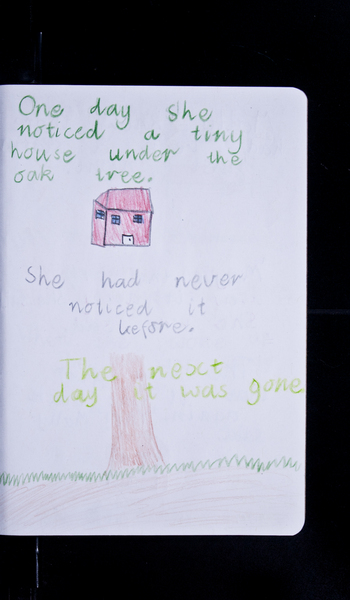 One day she
noticed a tiny
house under the
oak tree.
She had never
noticed it
before.
The next
day it was gone